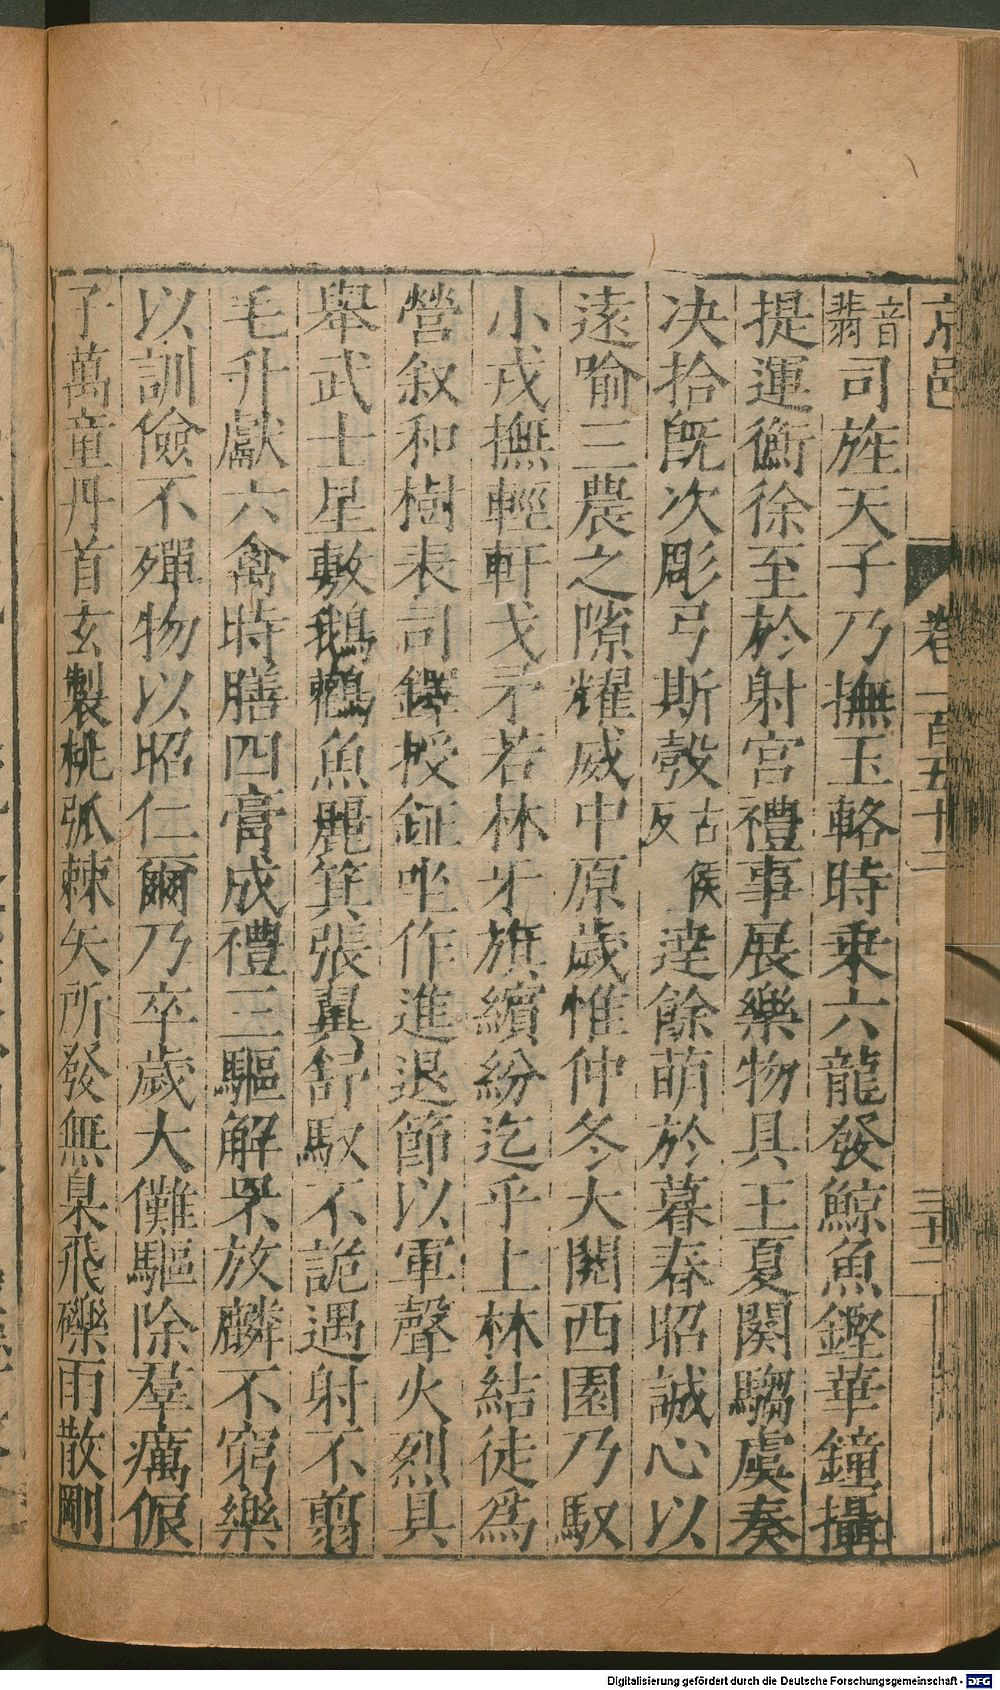 京邑 卷一百五十二 三十二
翡音司旌天子乃撫玉輅時乘六龍發鯨魚鏗華鐘攝
提運衡徐至於射宮禮事展樂物具王夏闋騶虞奏
决拾旣次彫弓斯彀古候反逹餘萌於暮春昭誠心以
遠喻三農之隙耀威中原歲惟仲冬大閱西園乃馭
小戎撫輕軒戈矛若林牙旗繽紛迄乎上林結徒爲
營叙和樹表司鐸授鉦坐作進退節以軍聲火烈具
舉武士星敷鵝鸛魚麗箕張翼舒馭不詭遇射不翦
毛升獻六禽時膳四膏成禮三驅解罘放麟不窮樂
以訓儉不殫物以昭仁爾乃卒歲大儺驅除羣癘侲
子萬童丹首玄製桃弧棘矢所發無臬飛礫雨散剛
Digitalisierung gefördert durch die Deutsche Forschungsgemeinschaft - DFG